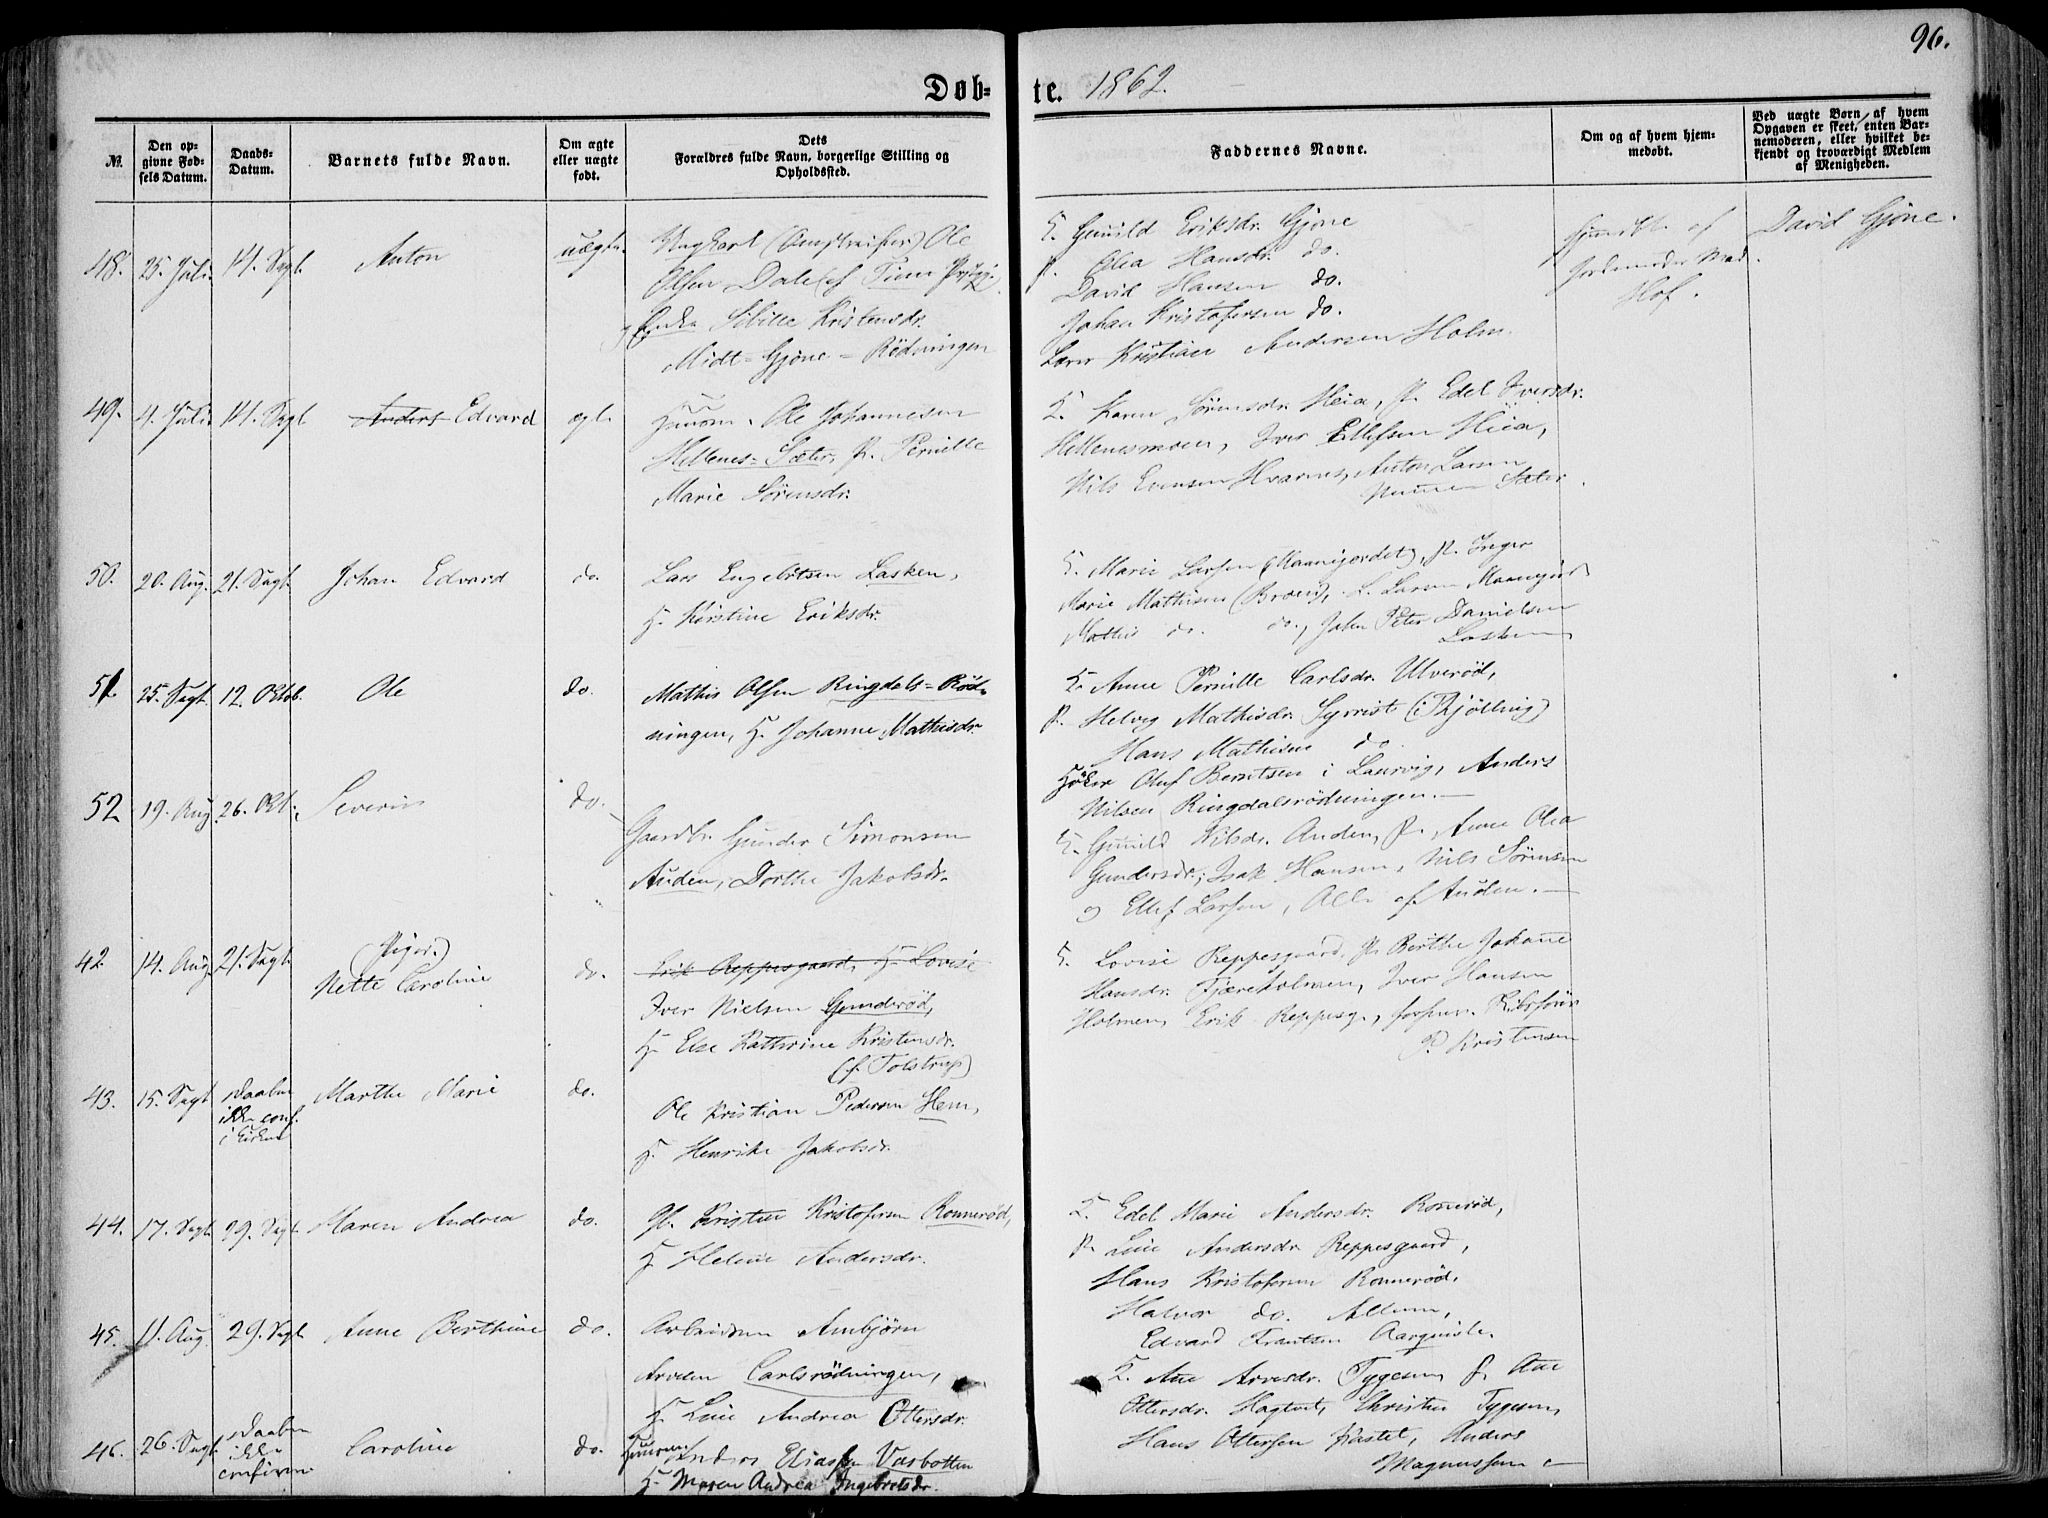 96.
Døb-
te. 1862.
№.
Den op-
givne Fød-
sels Datum.
Daabs-
Datum.
Barnets fulde Navn.
Om ægte
eller uægte
født.
Dets
Forældres fulde Navn, borgerlige Stilling og
Opholdssted.
Faddernes Navne.
Om og af hvem hjem-
medøbt.
Ved uægte Børn, af hvem
Opgaven er skeet, enten Bar-
nemoderen, eller hvilket be-
kjendt og troværdigt Medlem
af Menigheden.
48. 25. Juli. 14. Sept. Anton uægte.
Ungkarl Ole
Olsen Dale
Enke Sibille Kristensdr.
Midt-Gjøne-Rødningen
Gunild Eriksdr. Gjøne
P. Olea Hansdr. do.
David Hansen do.
Johan Kristofersen do.
Kristian Andersen Holm.
af
Jordemoder Mad.
Hof.
David Gjøne.
49. 4. Juli. 14. Sept. Anders Edvard ægte
Ole Johannesen
Hellenes-Sæter, P. Pernille
Marie Sörensdr.
K. Karen Sörensdr. Heia, P. Edel Iversdr.
Hellenesmoen, Iver Ellefsen Heia,
Nils Evensen Hvarnes, Anton Larsen
Sæter.
50. 20. Aug. 21. Sept. Johan Edvard do.
Lars Engebretsen Lasken,
H. Kirstine Eriksdr.
Marie Larsen, P. Inger
Marie Mathisen, L. Larsen
Mathis do. do., John Peter Danielsen
Lasken
51. 25. Sept. 12. Oktob. Ole do.
Mathis Olsen Ringdals-Rød-
ningen, H. Johanne Mathisdr.
K. Anne Pernille Carlsdr. Ulverød,
P. Helvig Mathisdr. Syrrist (i Thjølling)
Hans Mathisen do.
Oluf Berntsen i Laurvig, Anders
Nilsen Ringdalsrødningen.
52 19. Aug. 26. Okt. Severin do.
Gaardbr. Gunder Simonsen
Auden, Dorthe Jakobsdr.
Gunild Nilsdr. Auden, P. Anne Olea
Gundersdr., Isak Hansen, Nils Sörensen
og Ellef Larsen, Alle af Auden.
42. 14. Aug. 21. Sept. (Piger.)
Nette Caroline do.
Erik Reppesgaard, H. Lovise
Iver Nielsen Gunderød,
H. Else Kathrine Kristensdr.
(f. Tolstrup)
Lovise Reppesgaard, P. Berthe Johanne
Hansdr. Fjæreholmen, Iver Hansen
Holmen, Erik Reppesg.,
P. Kristensen
43. 15. Sept. Daaben
ikke conf.
i Kirken
Marthe Marie do.
Ole Kristian Pedersen Hem,
H. Henrike Jakobsdr.
44. 17. Sept. 29. Sept. Maren Andrea do.
Gb. Kristen Kristofersen Ronnerød,
H. Helene Andersdr.
K. Edel Marie Andersdr. Ronnerød,
P. Line Andersdr. Reppesgaard,
Hans Kristofersen Ronnerød,
Halvor do. Allum,
Edvard Frantsen
45. 11. Aug. 29. Sept. Anne Berthine do.
Arbeidsm. Ambjørn
Arvesen Carlsrødningen,
H. Line Andrea Ottersdr.
K. Ane Arvesdr. Tygesen, P. Ane
Ottersdr. Hagtvet, Christen Tygesen,
Hans Ottersen, Anders
Magnussen
46. 26. Sept. Daaben
ikke
confirm.
Caroline do.
Huusm. Anders Eliassen Vasbotten
H. Maren Andrea Ingebretsdr.